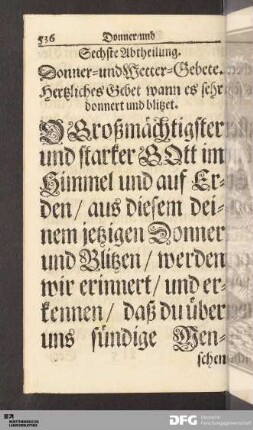 536 Donner-und
Sechste Abtheilung.
Donner-und Wetter-Gebete.
Hertzliches Gebet wann es sehr
donnert und blitzet.
O Großmächtigster
und starker GOtt im
Himmel und auf Er-
den/ aus diesem dei-
nem jetzigen Donner
und Blitzen/ werden
wir erinnert/ und er-
kennen/ daß du über
uns sündige Men-
schen
DFG Deutsche
Forschungsgemeinschaft